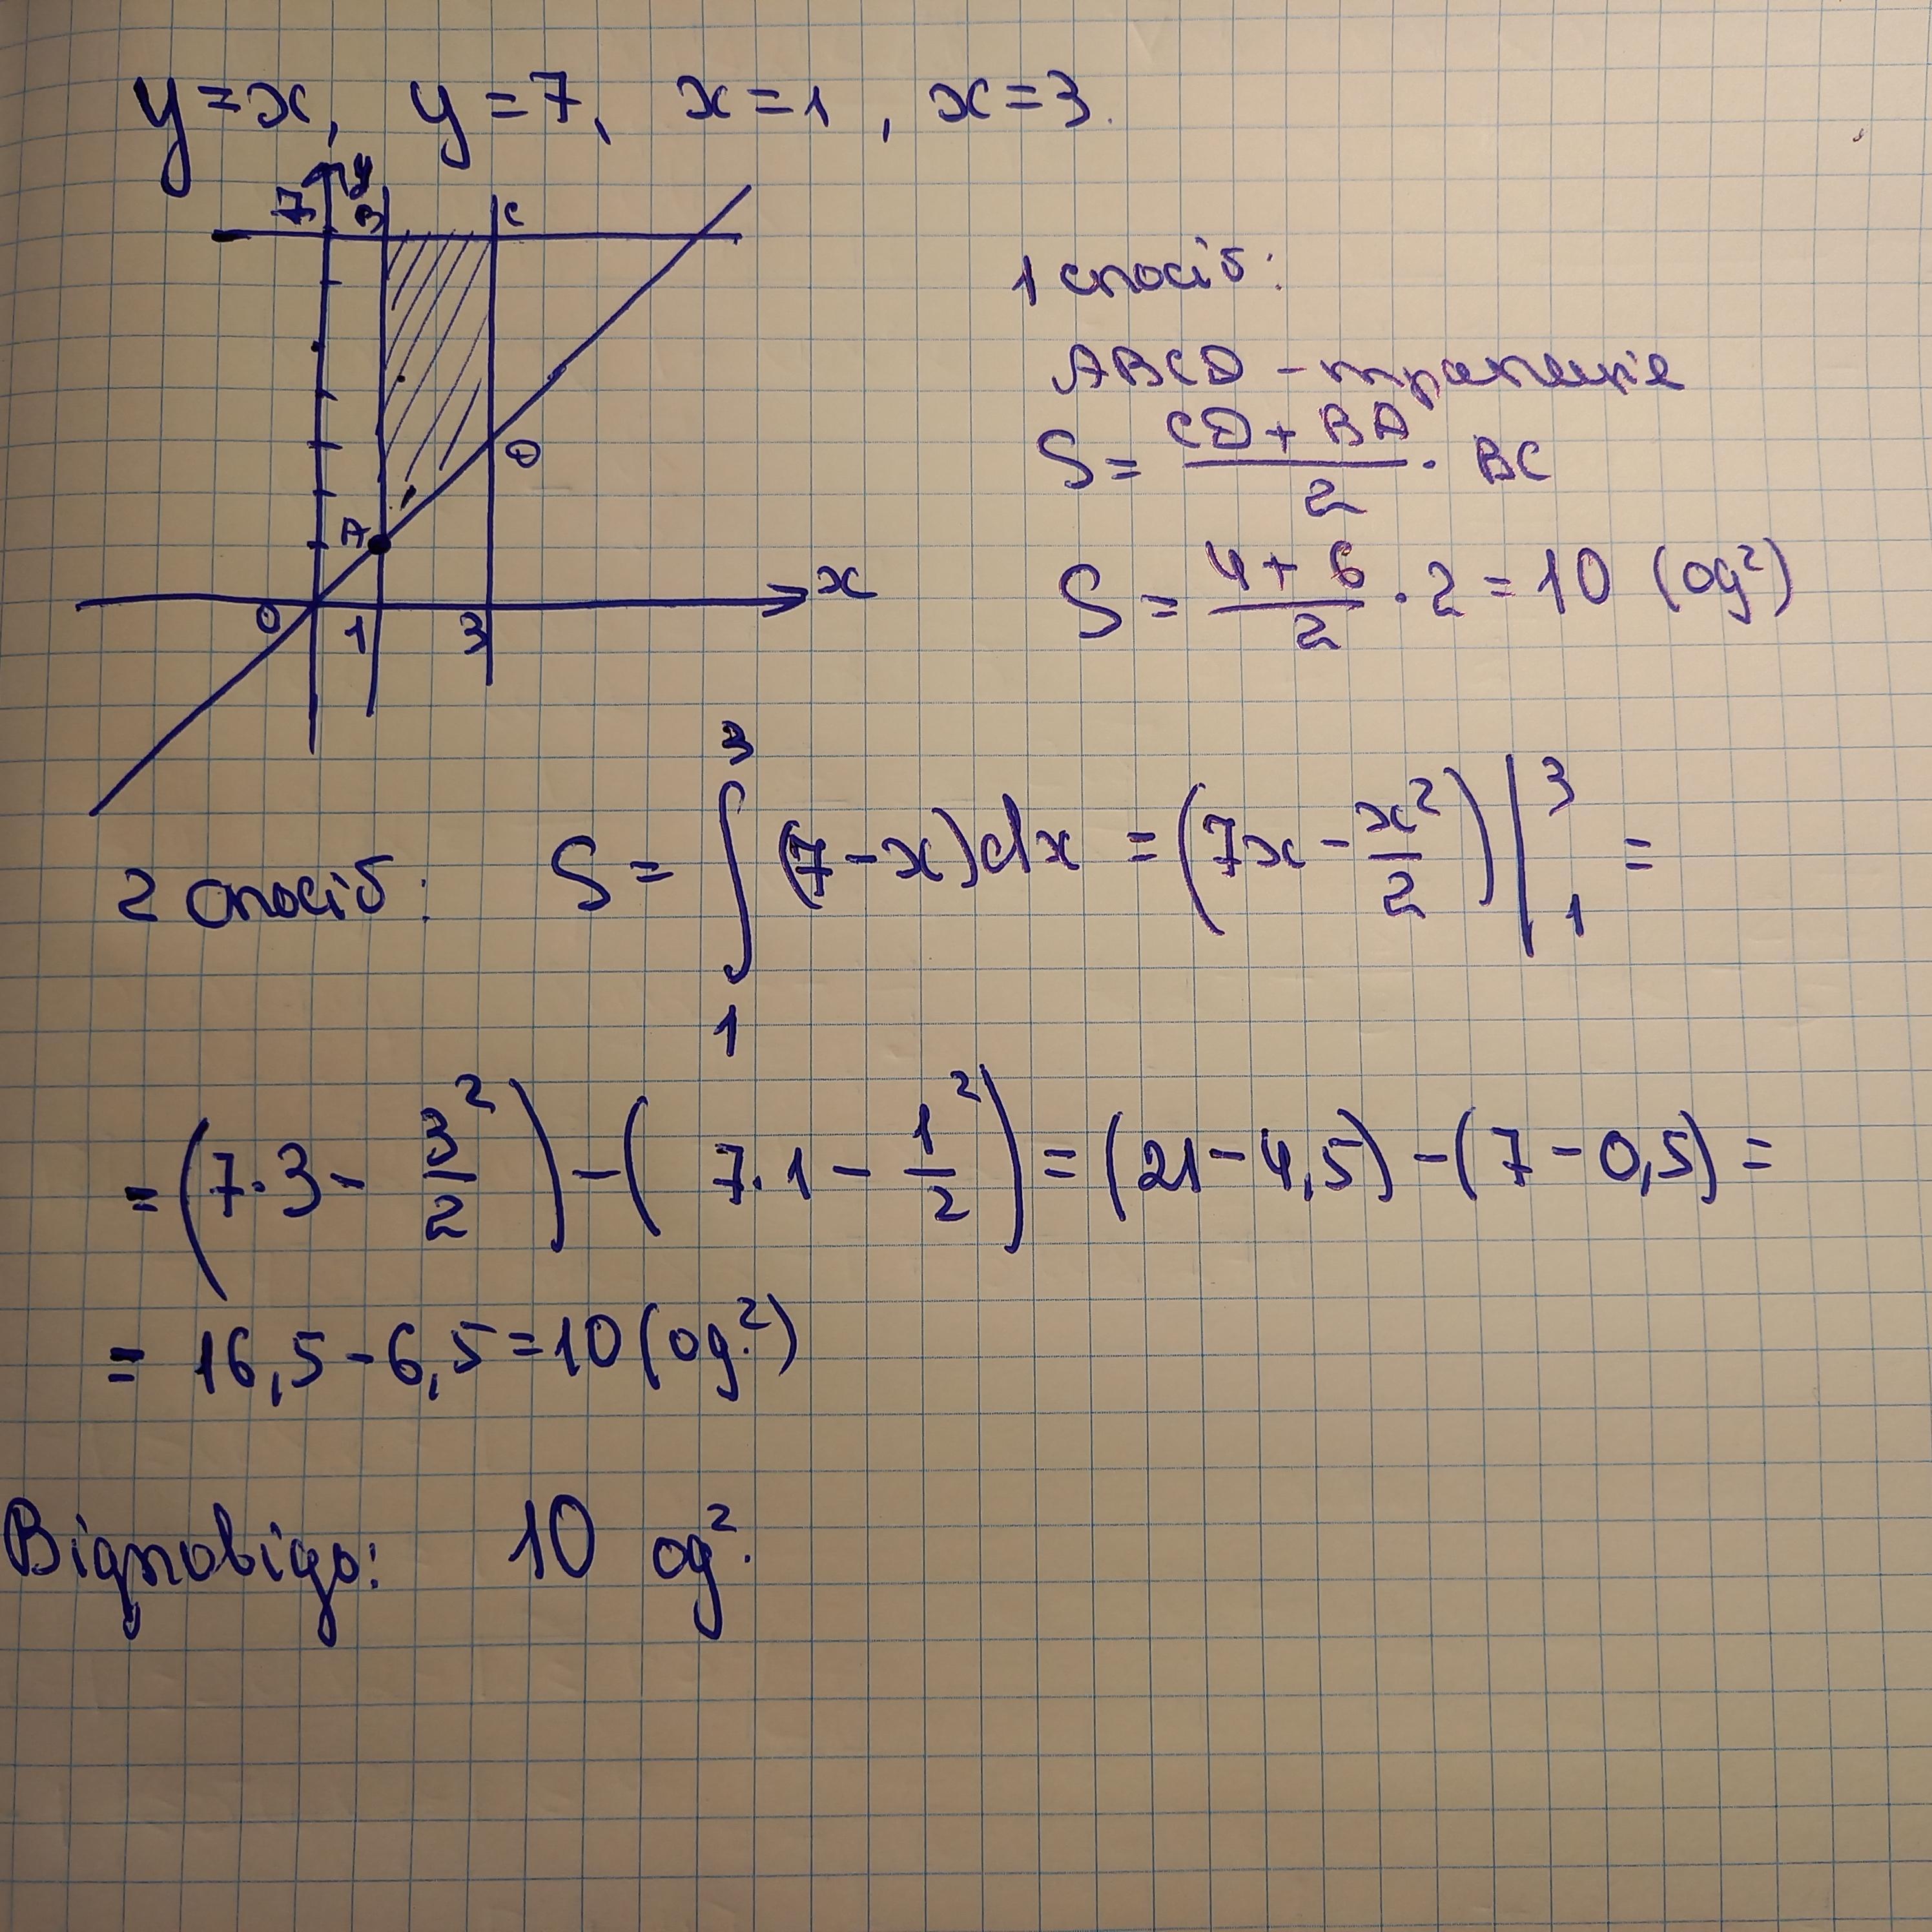 y = x, y = 7, x = 1, x = 3.
7 y B C
D
A
x
0 1 3
1 спосіб:
ABCD - трапеція
S = (CD + BA)/2 · BC
S = (4 + 6)/2 · 2 = 10 (од²)
2 спосіб: S = ∫₁³ (7 - x)dx = (7x - x²/2) |₁³ =
= (7·3 - 3²/2) - (7·1 - 1²/2) = (21 - 4,5) - (7 - 0,5) =
= 16,5 - 6,5 = 10 (од.²)
Відповідь: 10 од².